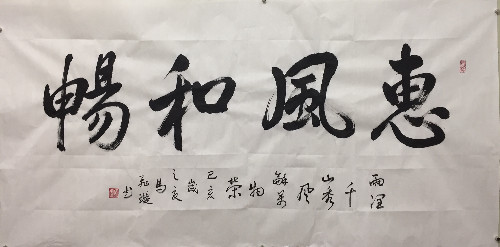 惠風和暢
雨潤千山秀風穌萬物榮
己亥歲之夏馬
書